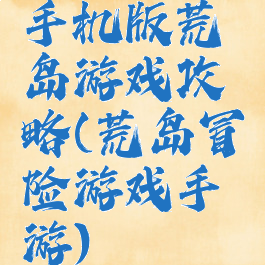 手机版荒
岛游戏攻
略(荒岛冒
险游戏手
游)